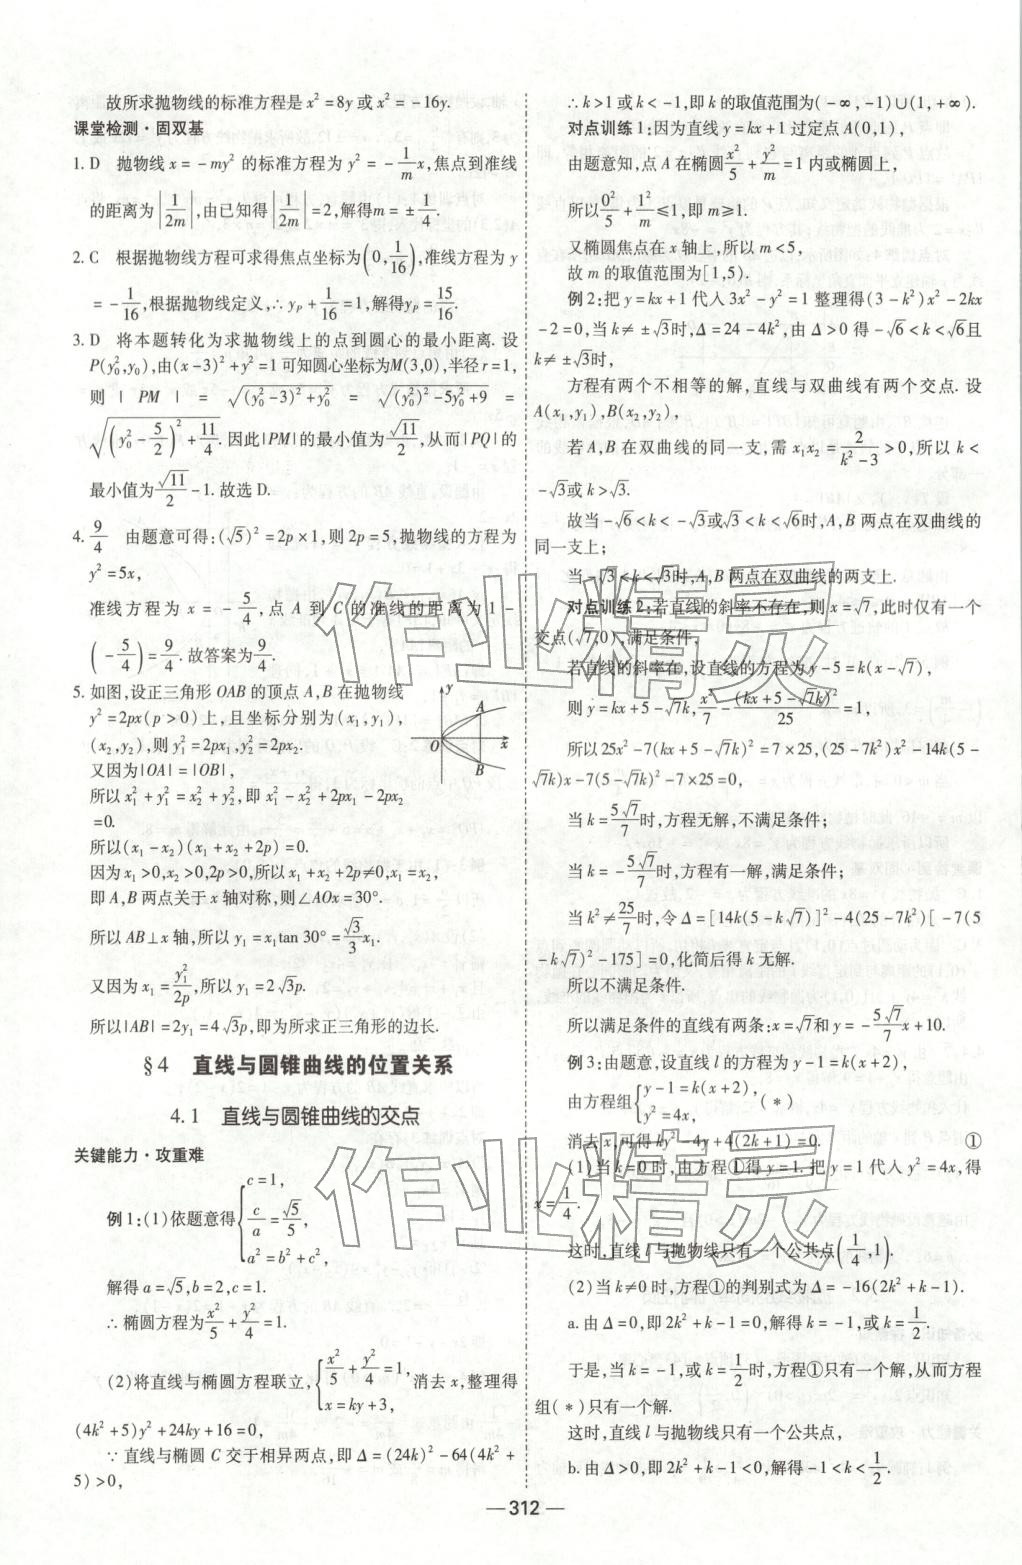 故所求抛物线的标准方程是 x²=8y 或 x²=-16y.
课堂检测·固双基
1. D 抛物线 x=-my² 的标准方程为 y²=-1/m x,焦点到准线
的距离为|1/2m|,由已知得|1/2m|=2,解得 m=±1/4.
2. C 根据抛物线方程可求得焦点坐标为(0,1/16),准线方程为 y
=-1/16,根据抛物线定义,∴yₚ+1/16=1,解得yₚ=15/16.
3. D 将本题转化为求抛物线上的点到圆心的最小距离. 设
P(y₀²,y₀),由(x-3)²+y²=1 可知圆心坐标为M(3,0),半径 r=1,
则|PM|=√((y₀²-3)²+y₀²)=√((y₀²)²-5y₀²+9)=
√((y₀²-5/2)²+11/4). 因此|PM|的最小值为√11/2,从而|PQ|的
最小值为√11/2-1. 故选 D.
4. 9/4 由题意可得:(√5)²=2p×1,则 2p=5,抛物线的方程为
y²=5x,
准线方程为 x=-5/4,点 A 到 C 的准线的距离为 1-
(-5/4)=9/4. 故答案为9/4.
5. 如图,设正三角形 OAB 的顶点 A,B 在抛物线
y²=2px(p>0)上,且坐标分别为(x₁,y₁),
(x₂,y₂),则 y₁²=2px₁,y₂²=2px₂.
又因为|OA|=|OB|,
所以 x₁²+y₁²=x₂²+y₂²,即 x₁²-x₂²+2px₁-2px₂
=0.
所以(x₁-x₂)(x₁+x₂+2p)=0.
因为x₁>0,x₂>0,2p>0,所以x₁+x₂+2p≠0,x₁=x₂,
即 A,B 两点关于 x 轴对称,则∠AOx=30°.
所以 AB⊥x 轴,所以 y₁=x₁tan 30°=√3/3 x₁.
又因为 x₁=y₁²/2p,所以 y₁=2√3p.
所以|AB|=2y₁=4√3p,即为所求正三角形的边长.
y
A
O
x
B
§4 直线与圆锥曲线的位置关系
4.1 直线与圆锥曲线的交点
关键能力·攻重难
例 1:(1)依题意得{c=1, c/a=√5/5, a²=b²+c²,
解得 a=√5,b=2,c=1.
∴椭圆方程为x²/5+y²/4=1.
(2)将直线与椭圆方程联立,{x²/5+y²/4=1, x=ky+3, 消去 x,整理得
(4k²+5)y²+24ky+16=0,
∵直线与椭圆 C 交于相异两点,即 Δ=(24k)²-64(4k²+
5)>0,
∴k>1 或 k<-1,即 k 的取值范围为(-∞,-1)∪(1,+∞).
对点训练 1:因为直线 y=kx+1 过定点 A(0,1),
由题意知,点 A 在椭圆x²/5+y²/m=1 内或椭圆上,
所以0²/5+1²/m≤1,即 m≥1.
又椭圆焦点在 x 轴上,所以 m<5,
故 m 的取值范围为[1,5).
例 2:把 y=kx+1 代入 3x²-y²=1 整理得(3-k²)x²-2kx
-2=0,当 k≠±√3时,Δ=24-4k²,由 Δ>0 得-√6<k<√6且
k≠±√3时,
方程有两个不相等的解,直线与双曲线有两个交点. 设
A(x₁,y₁),B(x₂,y₂),
若 A,B 在双曲线的同一支,需 x₁x₂=2/(k²-3)>0,所以 k<
-√3或 k>√3.
故当-√6<k<-√3或√3<k<√6时,A,B 两点在双曲线的
同一支上;
当-√3<k<√3时,A,B 两点在双曲线的两支上.
对点训练 2:若直线的斜率不存在,则 x=√7,此时仅有一个
交点(√7,0),满足条件,
若直线的斜率存在,设直线的方程为 y-5=k(x-√7),
则 y=kx+5-√7k,x²/7-(kx+5-√7k)²/25=1,
所以 25x²-7(kx+5-√7k)²=7×25,(25-7k²)x²-14k(5-
√7k)x-7(5-√7k)²-7×25=0,
当 k=5√7/7时,方程无解,不满足条件;
当 k=-5√7/7时,方程有一解,满足条件;
当 k²≠25/7时,令 Δ=[14k(5-k√7)]²-4(25-7k²)[-7(5
-k√7)²-175]=0,化简后得 k 无解.
所以不满足条件.
所以满足条件的直线有两条:x=√7和 y=-5√7/7 x+10.
例 3:由题意,设直线 l 的方程为 y-1=k(x+2),
由方程组{y-1=k(x+2), y²=4x, (*)
消去 x,可得 ky²-4y+4(2k+1)=0. ①
(1)当 k=0 时,由方程①得 y=1. 把 y=1 代入 y²=4x,得
x=1/4.
这时,直线 l 与抛物线只有一个公共点(1/4,1).
(2)当 k≠0 时,方程①的判别式为 Δ=-16(2k²+k-1).
a. 由 Δ=0,即 2k²+k-1=0,解得 k=-1,或 k=1/2.
于是,当 k=-1,或 k=1/2时,方程①只有一个解,从而方程
组(*)只有一个解.
这时,直线 l 与抛物线只有一个公共点,
b. 由 Δ>0,即 2k²+k-1<0,解得-1<k<1/2.
—312—
作业精灵
作业精灵